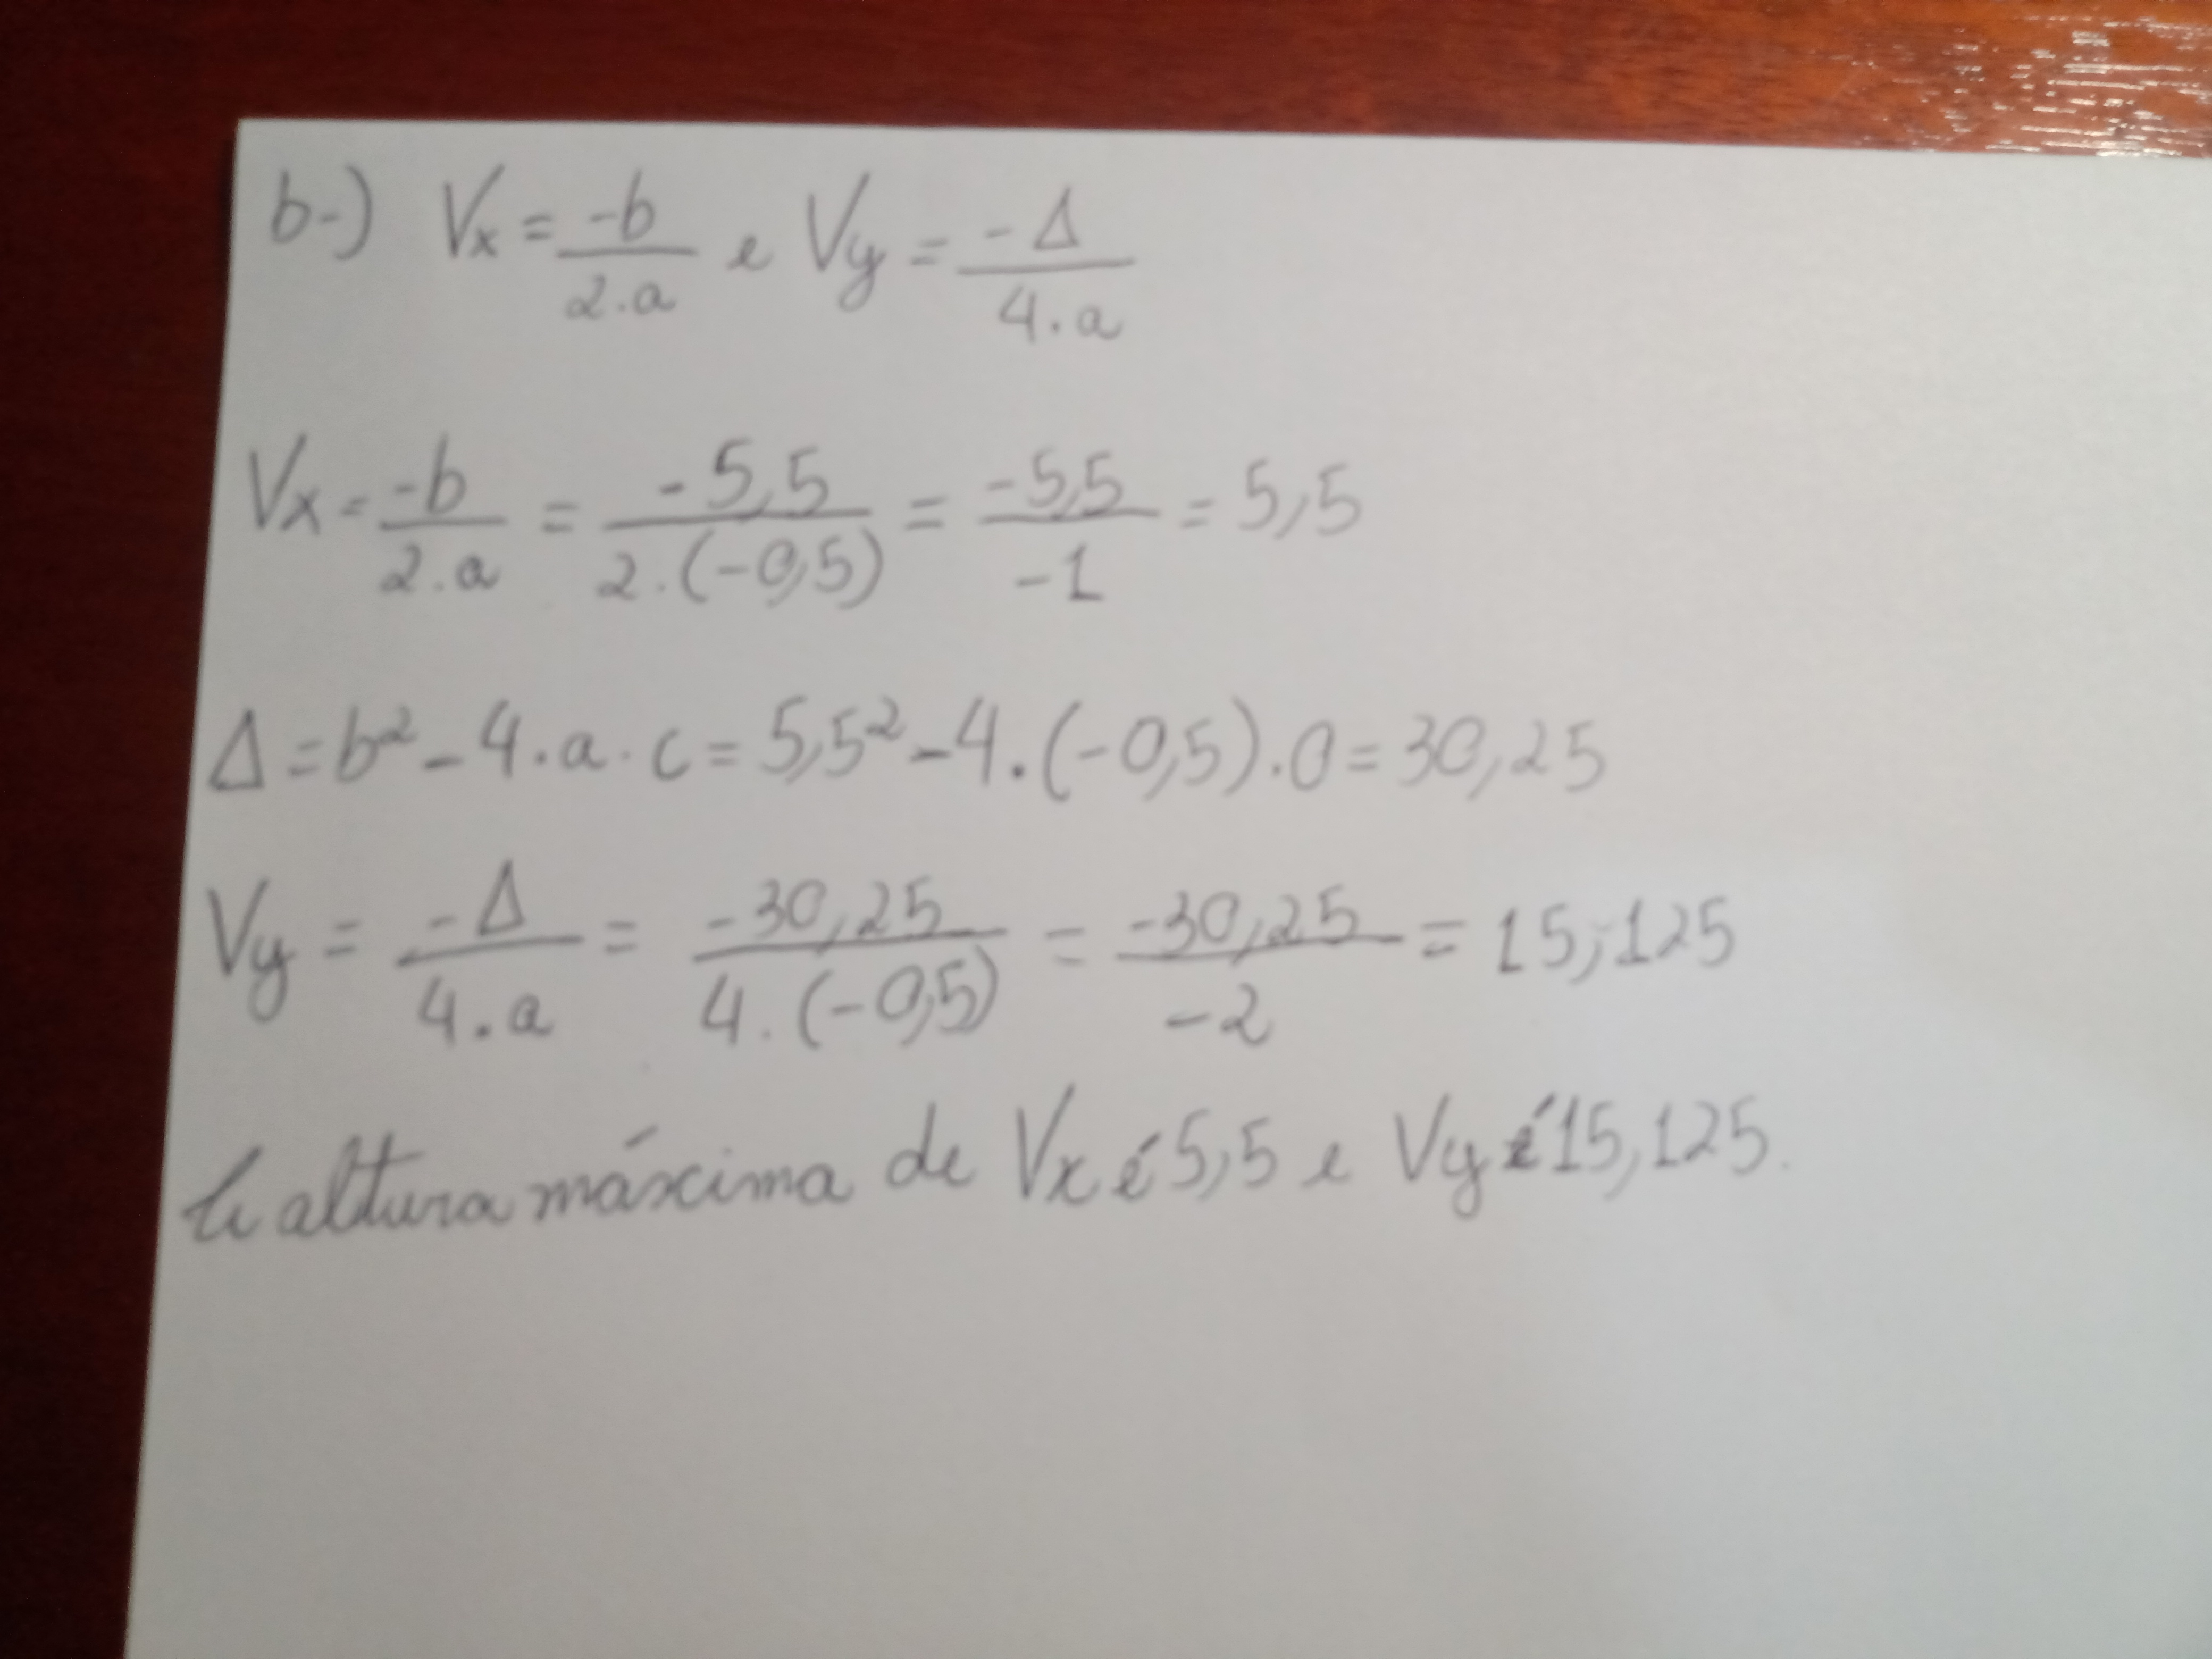 b-) Vx = -b / 2.a e Vy = -Δ / 4.a
Vx = -b / 2.a = -5,5 / 2.(-0,5) = -5,5 / -1 = 5,5
Δ = b² - 4.a.c = 5,5² - 4.(-0,5).0 = 30,25
Vy = -Δ / 4.a = -30,25 / 4.(-0,5) = -30,25 / -2 = 15,125
A altura máxima de Vx é 5,5 e Vy é 15,125.